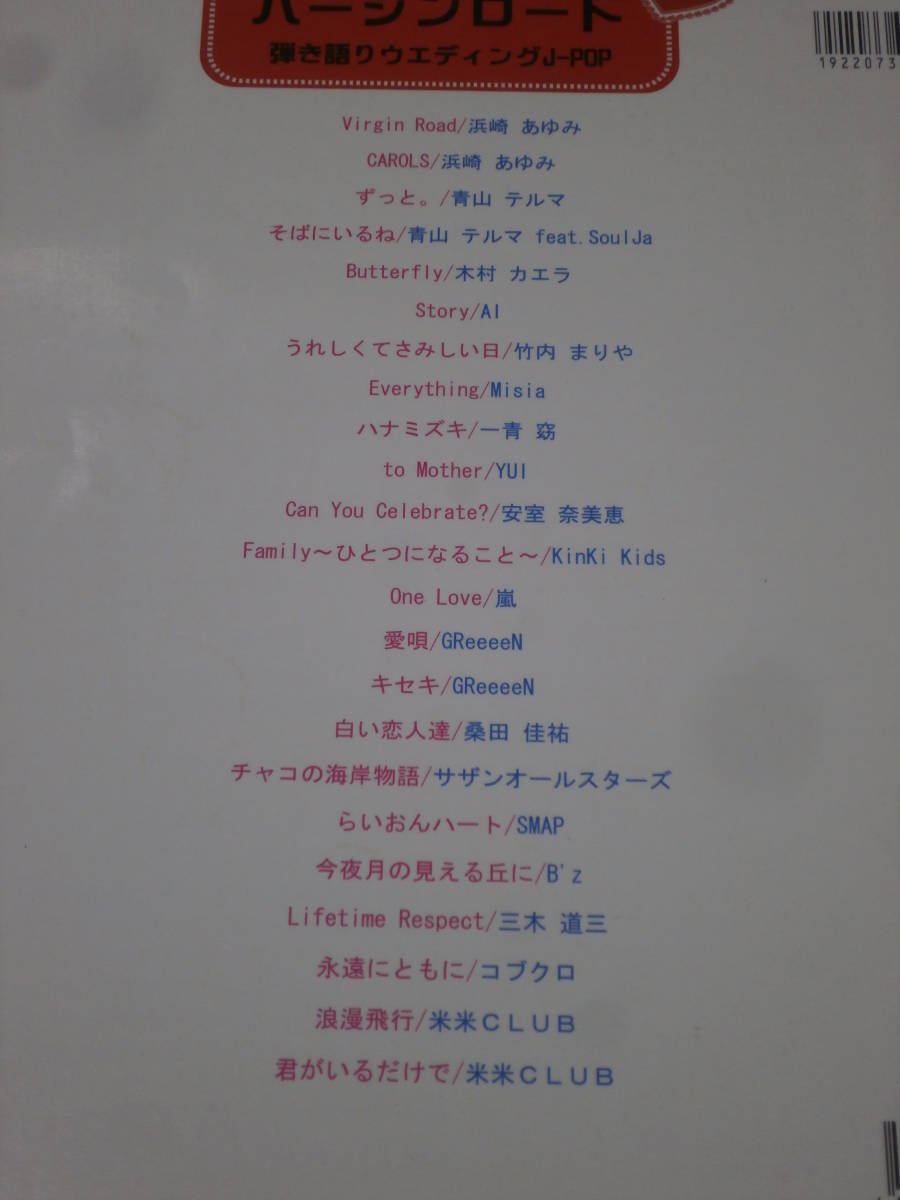 バージンロード
弾き語りウエディングJ-POP
1922073
Virgin Road/浜崎 あゆみ
CAROLS/浜崎 あゆみ
ずっと。/青山 テルマ
そばにいるね/青山 テルマ feat.SoulJa
Butterfly/木村 カエラ
Story/AI
うれしくてさみしい日/竹内 まりや
Everything/Misia
ハナミズキ/一青 窈
to Mother/YUI
Can You Celebrate?/安室 奈美恵
Family～ひとつになること～/KinKi Kids
One Love/嵐
愛唄/GReeeeN
キセキ/GReeeeN
白い恋人達/桑田 佳祐
チャコの海岸物語/サザンオールスターズ
らいおんハート/SMAP
今夜月の見える丘に/B'z
Lifetime Respect/三木 道三
永遠にともに/コブクロ
浪漫飛行/米米ＣＬＵＢ
君がいるだけで/米米ＣＬＵＢ